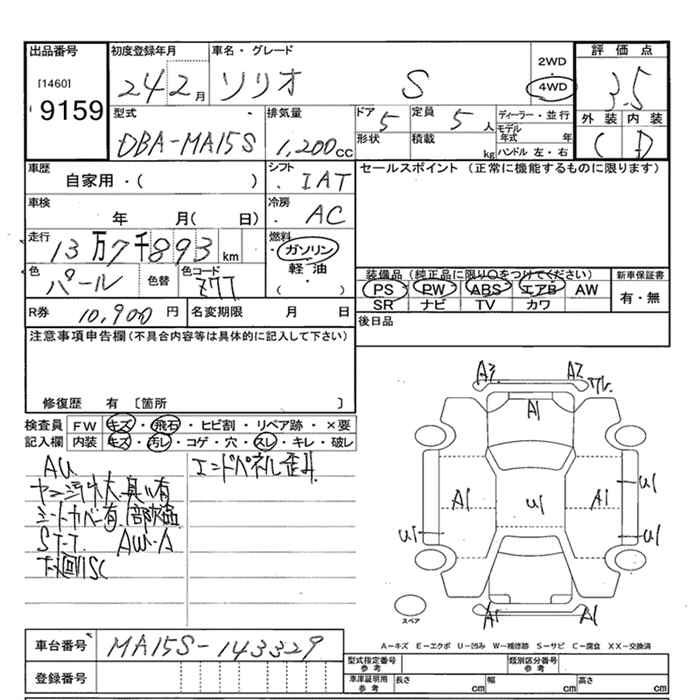 出品番号 初度登録年月 車名・グレード 2WD 評価点
[1460] 24 2月 ソリオ S 4WD 3.5
9159 型式 排気量 ドア 5 定員 5人 ディーラー・並行 外装 内装
DBA-MA15S 1,200cc 形状 積載 kg モデル年式 年 C D
ハンドル 左・右
車歴 シフト セールスポイント (正常に機能するものに限ります)
自家用・( ) IAT
車検 冷房
年 月( 日) AC
走行 燃料
13万7千893km ガソリン
色 色替 色コード 軽油 装備品(純正品に限り○をつけてください) 新車保証書
パール Z7T ・( ) PS PW ABS エアB AW 有・無
SR ナビ TV カワ
R券 10,900円 名変期限 月 日 後日品
注意事項申告欄(不具合内容等は具体的に記入して下さい)
修復歴 有 〔箇所 〕
検査員 FW キズ・飛石・ヒビ割・リペア跡・×要
記入欄 内装 キズ・汚レ・コゲ・穴・スレ・キレ・破レ
エンドパネル歪み
シートカバー有
ST-T. AW-A
下廻リSC
A3 A2
A1
A1 U1 A1 U1
U1 U1
A1 A1
スペア
A-キズ E-エクボ U-凹み W-補修跡 S-サビ C-腐食 XX-交換済
車台番号 MA15S-143329
型式指定番号参考 類別区分番号参考
登録番号 車庫証明用参考 長さ cm 幅 cm 高さ cm